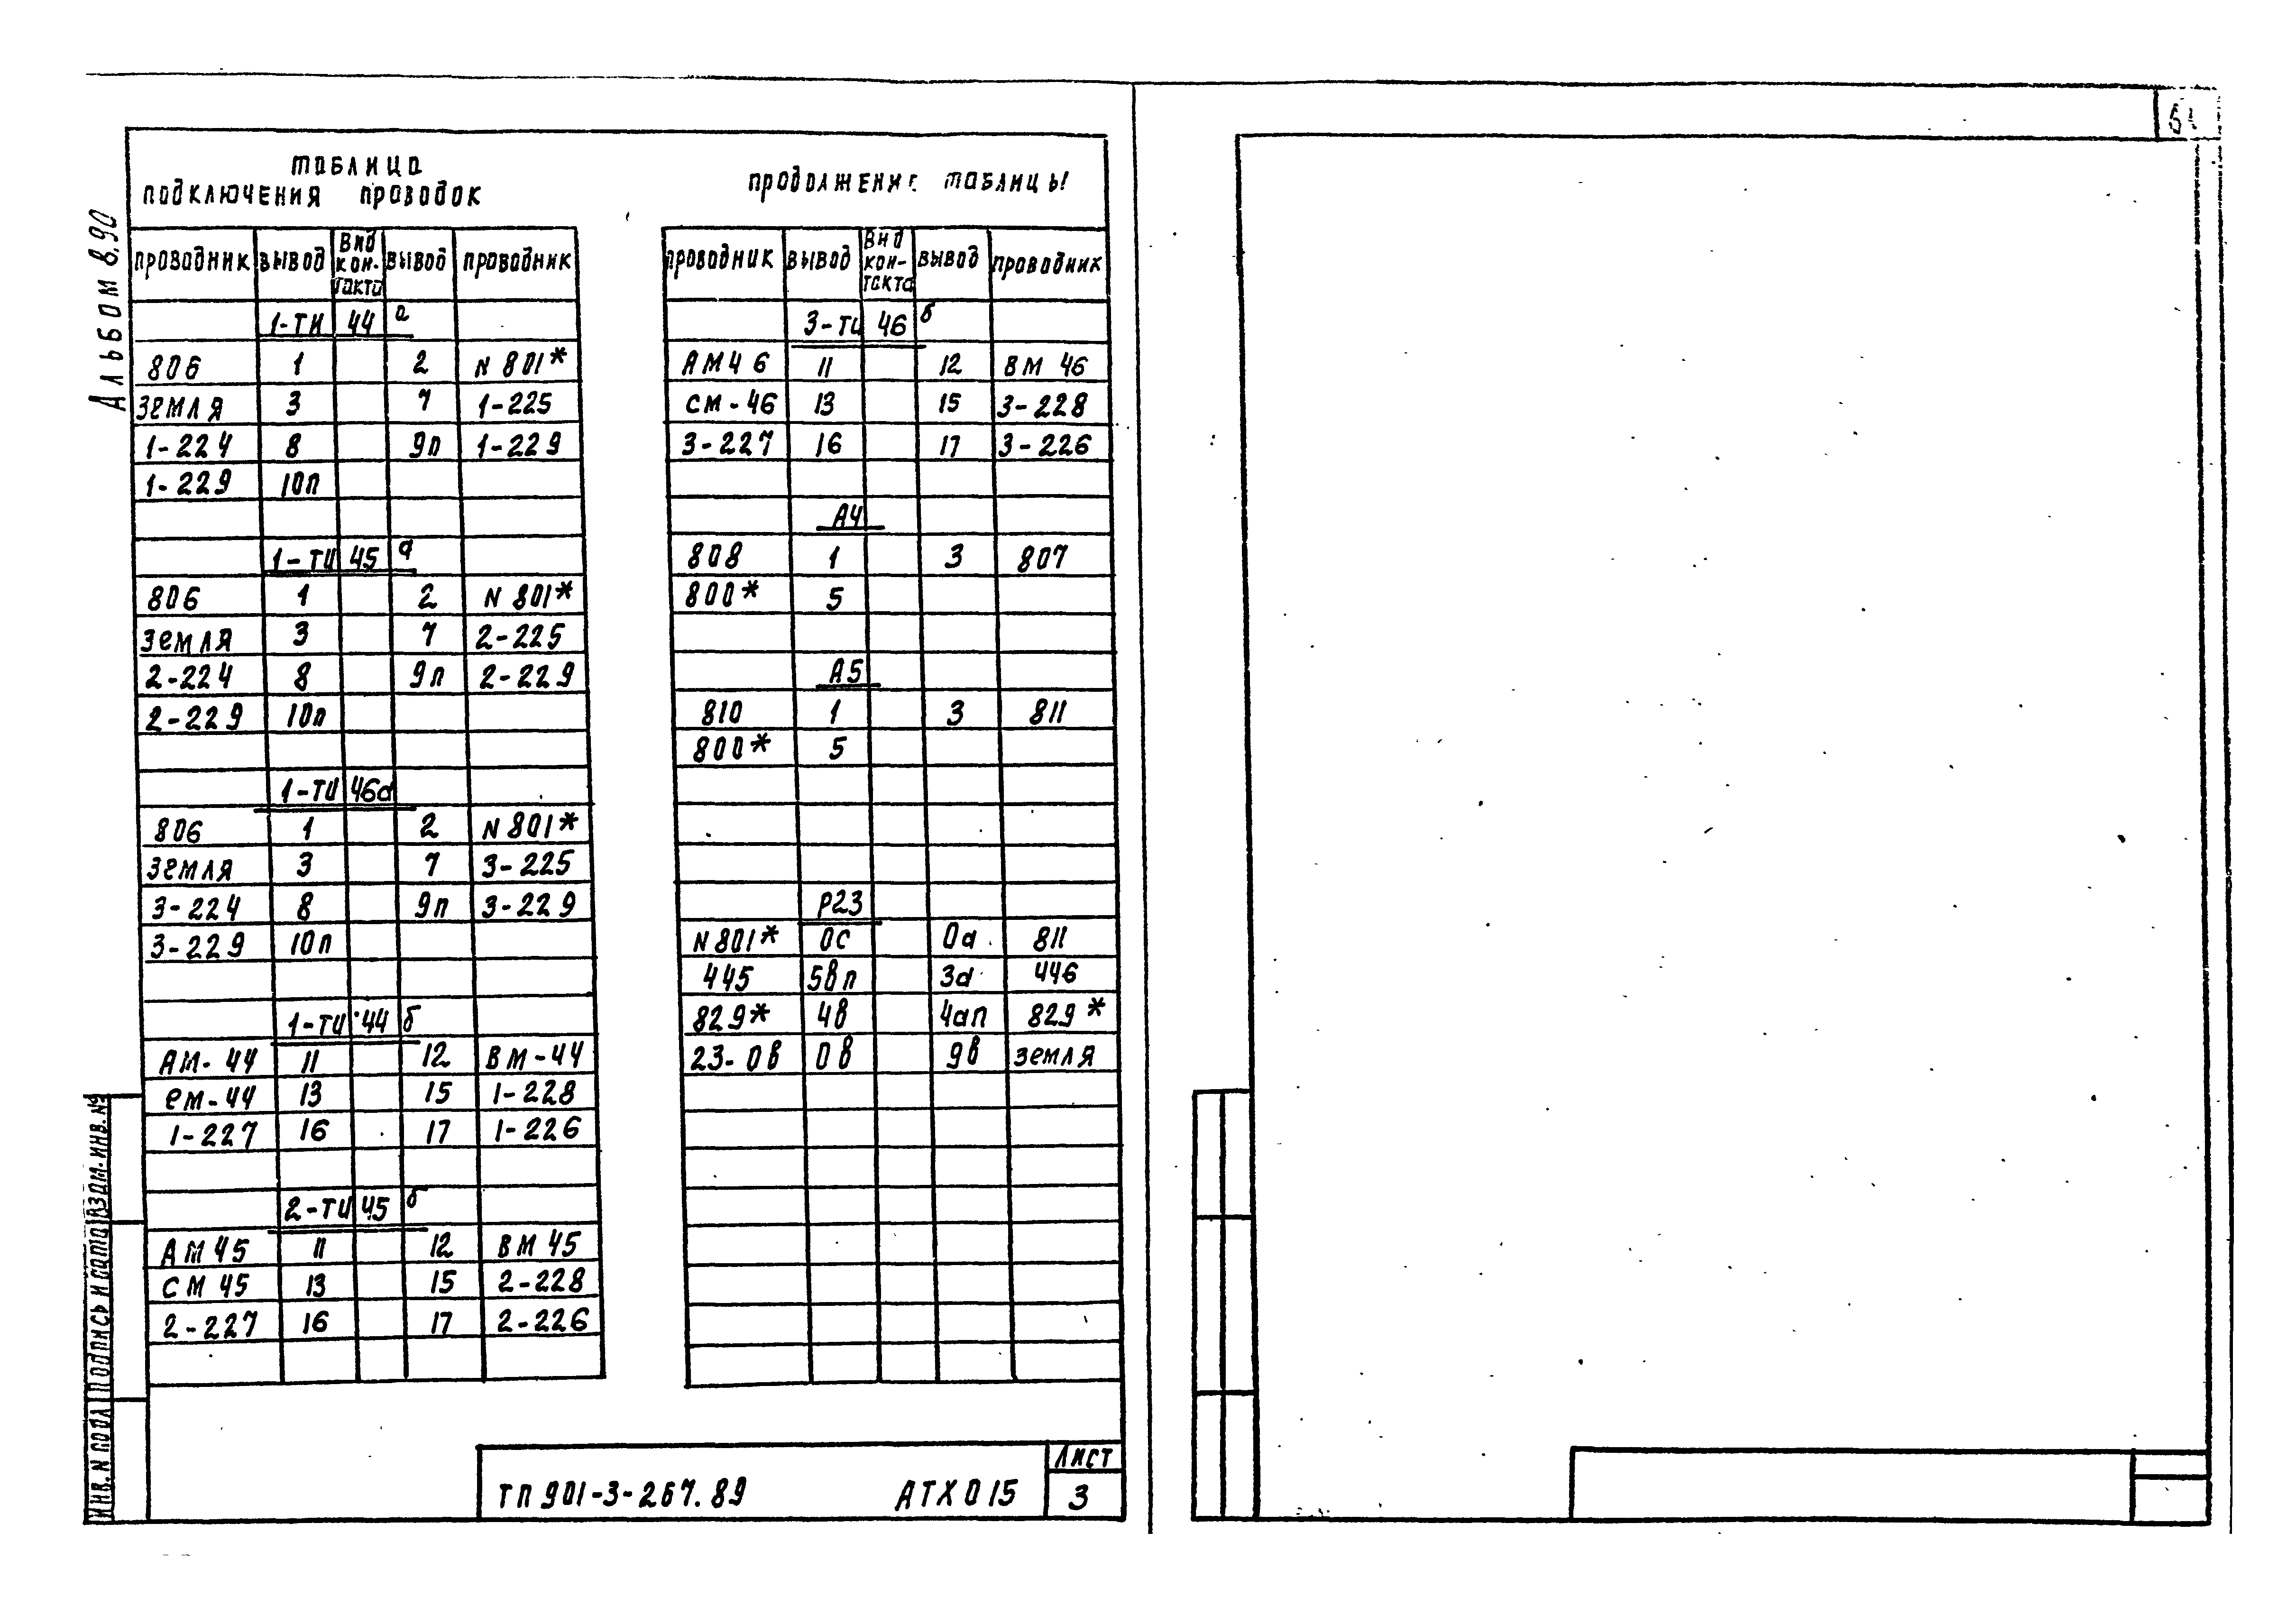 Альбом 8,90
Таблица
подключения проводок
проводник вывод Вид кон-такта вывод проводник
1-ТИ 44 а
806 1 2 N 801*
Земля 3 7 1-225
1-224 8 9п 1-229
1-229 10п
1-ТИ 45 а
806 1 2 N 801*
Земля 3 7 2-225
2-224 8 9п 2-229
2-229 10п
1-ТИ 46а
806 1 2 N 801*
Земля 3 7 3-225
3-224 8 9п 3-229
3-229 10п
1-ТИ 44 б
АМ-44 11 12 ВМ-44
ем-44 13 15 1-228
1-227 16 17 1-226
2-ТИ 45 б
АМ45 11 12 ВМ45
СМ45 13 15 2-228
2-227 16 17 2-226
Продолжение таблицы
проводник вывод Вид кон-такта вывод проводник
3-ТИ 46 б
АМ46 11 12 ВМ 46
СМ-46 13 15 3-228
3-227 16 17 3-226
А4
808 1 3 807
800* 5
А5
810 1 3 811
800* 5
Р23
N801* 0с 0а 811
445 5вп 3а 446
829* 4в 4ап 829*
23-0в 0в 9в Земля
Инв. N подл Подпись и дата Взам. инв. №
ТП 901-3-267.89 АТХ 015
Лист
3